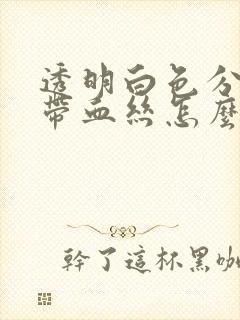 透明白色分
帶血絲怎麼
幹了這杯黑咖